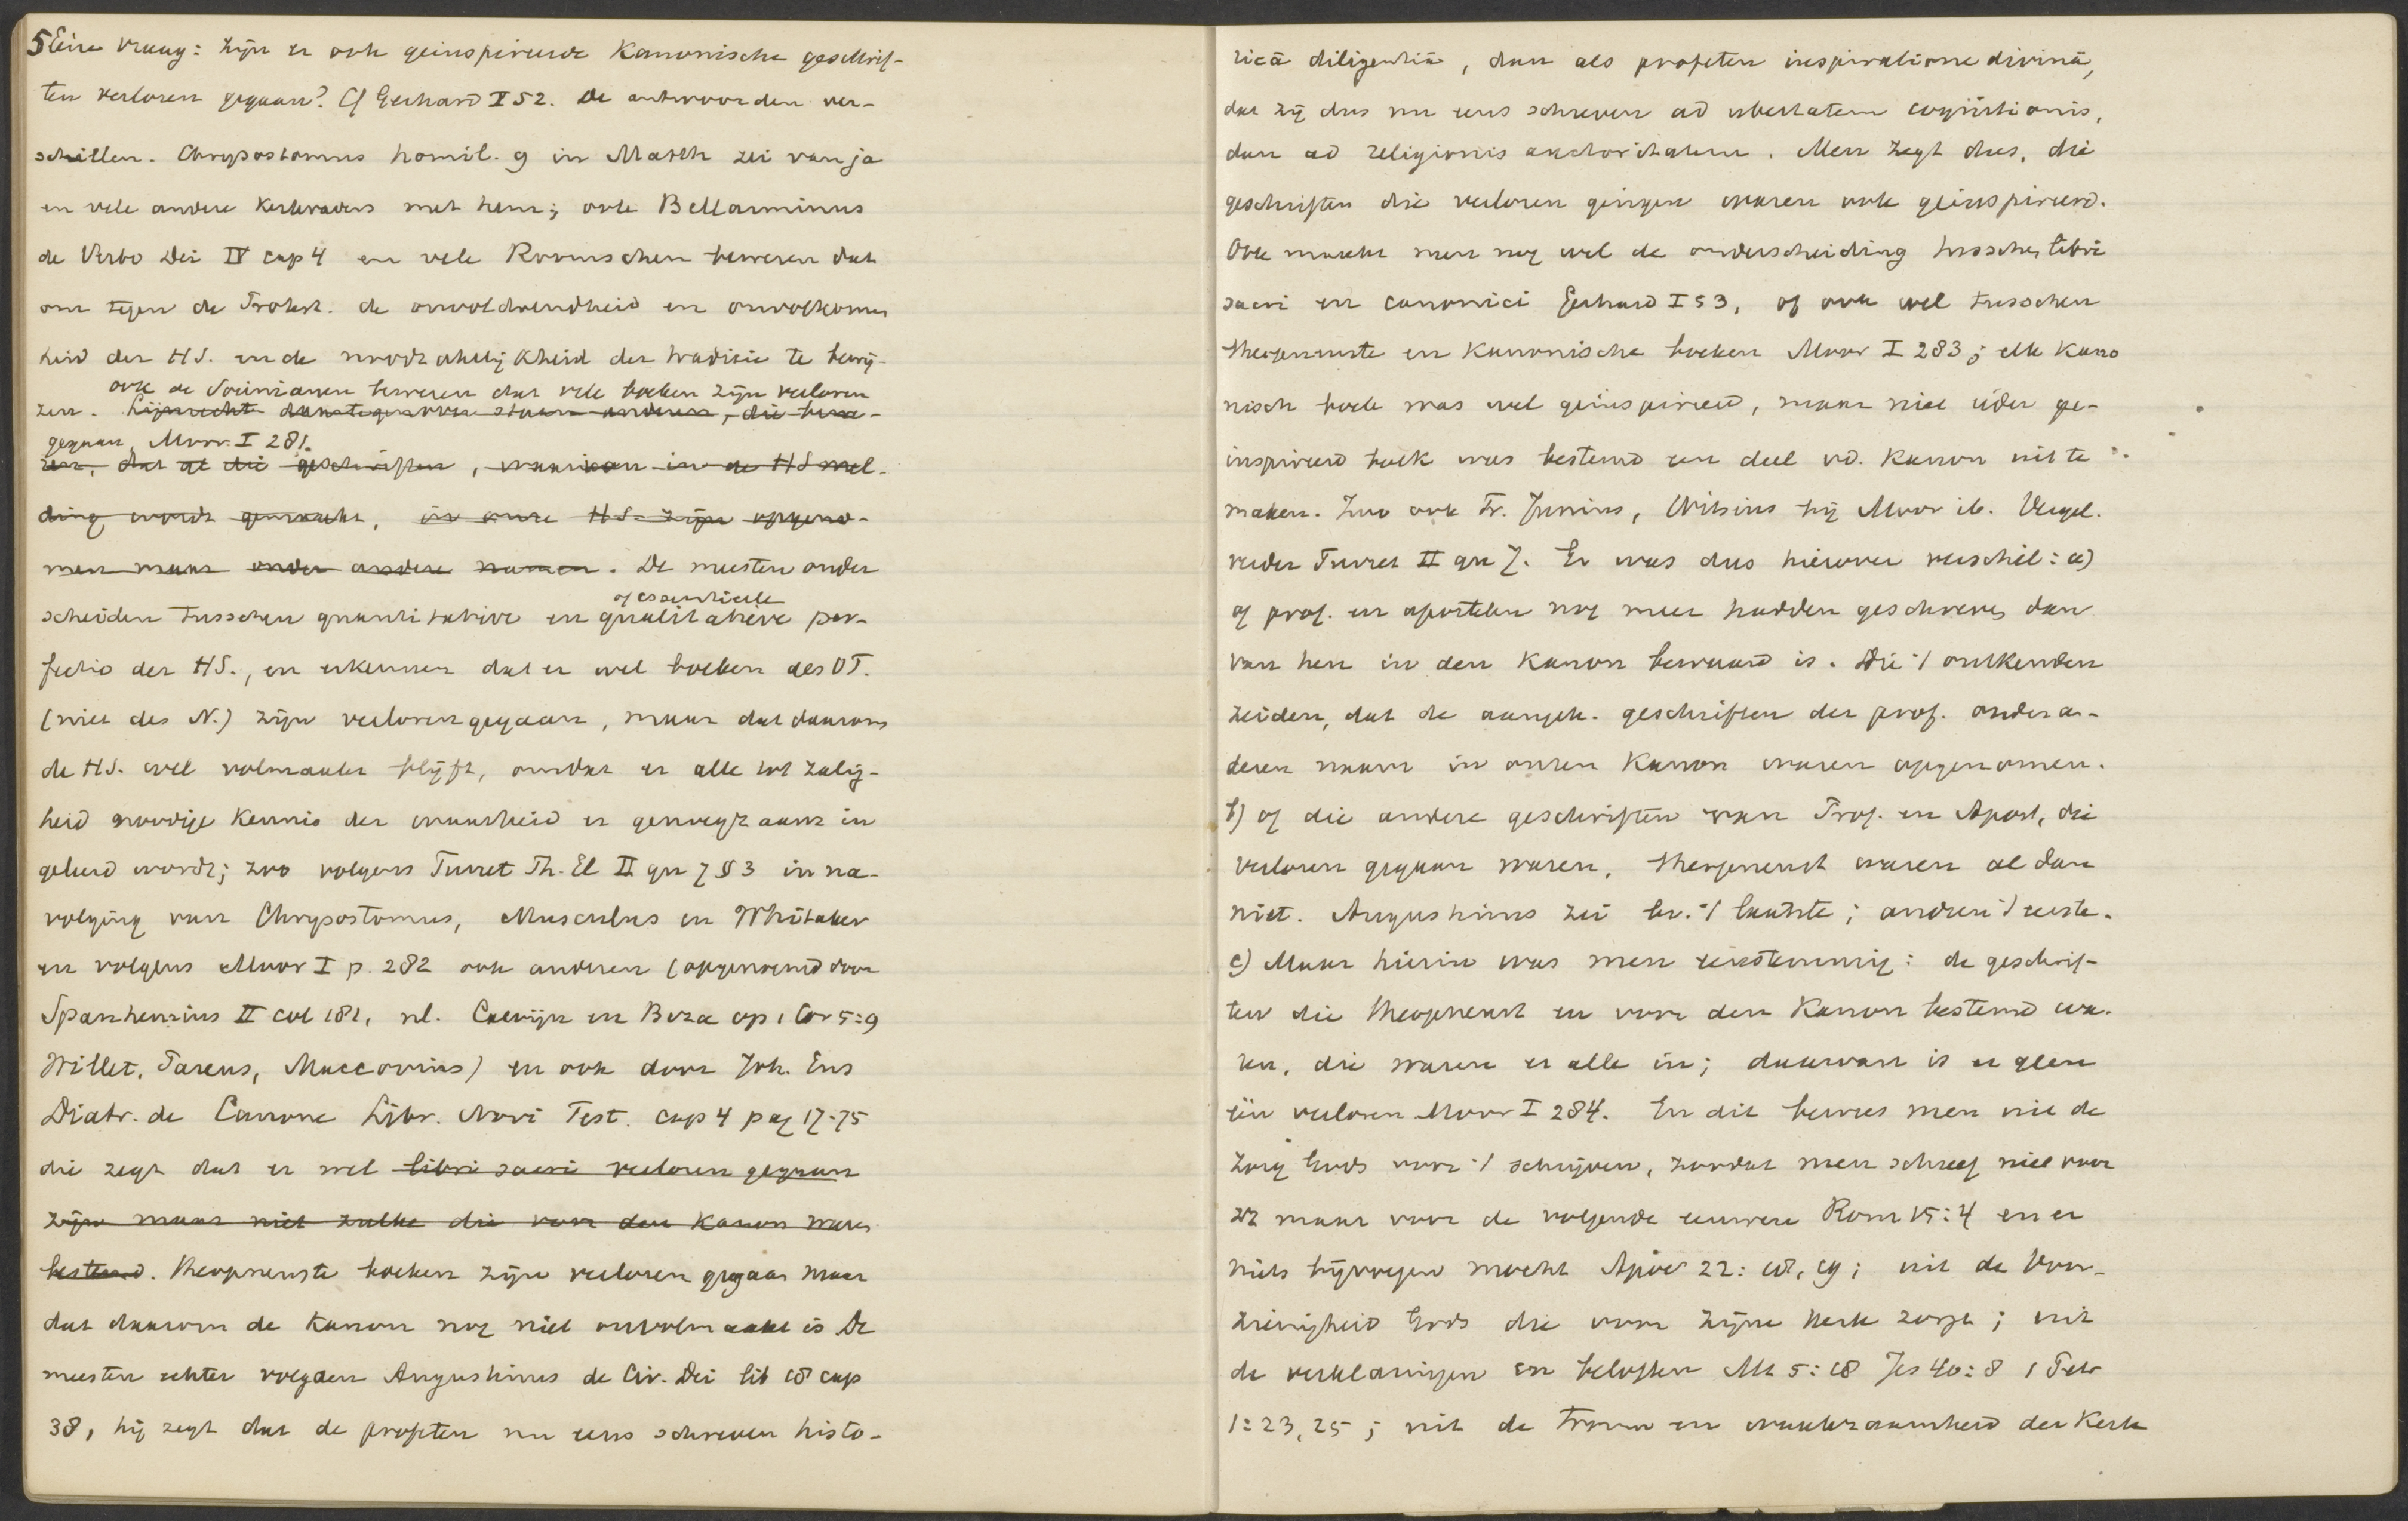 5 Eene vraag: zijn er ook geinspireerde Kanonische geschrif-
ten verloren gegaan? Cf Gerhard I 52. De antwoorden ver-
schillen. Chrysostomus homil. 9 in Matth zei van ja
en vele andere Kerkvaders met hem; ook Bellarminus
de Verbo Dei IV cap 4 en vele Roomschen beweren dat
om tegen de Protest. de onvoldoendheid en onvolkomen
heid der HS. en de noodzakelijkheid der traditie te bewij-
ook de Socinianen beweren dat vele boeken zijn verloren
zen. Lijnrecht daartegenover staan anderen, die bewe-
gegaan, Moor. I 281.
ren, dat al die geschriften, waarvan in de HS mel-
ding wordt gemaakt, in onze HS. zijn opgeno-
men maar onder andere namen. De meesten onder
of essentieele
scheiden tusschen quantitative en qualitatieve per-
fectio der HS., en erkennen dat er wel boeken des OT.
(niet des N.) zijn verloren gegaan, maar dat daarom
de HS. wel volmaakt blijft, omdat er alle tot zalig-
heid noodige Kennis der waarheid er genoegzaam in
geleerd wordt; zoo volgens Turret Th. El II qu 7 § 3 in na-
volging van Chrysostomus, Musculus en Whitaker
en volgens Moor I p. 282 ook anderen (opgenoemd door
Spanhemius II col 181, nl. Calvijn en Beza op 1 Cor 5:9
Willet, Pareus, Maccovius) en ook door Joh. Ens
Diatr. de Canone Libr. Novi Test. cap 4 pag 17-75
die zegt dat er wel libri sacri verloren gegaan
zijn maar niet zulke die voor den Kanon waren
bestemd. Theopneuste boeken zijn verloren gegaan maar
dat daarom de Kanon nog niet onvolmaakt is De
meesten echter volgden Augustinus de Civ. Dei lib 18 cap
38, hij zegt dat de profeten nu eens schreven histo-
ricâ diligentiâ, dan als profeten inspiratione divinâ,
dat zij dus nu eens schreven ad ubertatem cognitionis,
dan ad religionis auctoritatem. Men zegt dus, die
geschriften die verloren gingen waren ook geinspireerd.
Ook maakt men nog wel de onderscheiding tusschen libri
sacri en canonici Gerhard I 53, of ook wel tusschen
theopneuste en Kanonische boeken Moor I 283; elk Kano
nisch boek was wel geinspireerd, maar niet ieder ge-
inspireerd boek was bestemd een deel v.d. Kanon uit te
maken. Zoo ook Fr. Junius, Witsius bij Moor ib. Vergel.
verder Turret II qu 7. Er was dus hierover verschil: a)
of prof. en apostelen nog meer hadden geschreven dan
van hen in den Kanon bewaard is. Die 't ontkenden
zeiden, dat de aangeh. geschriften der prof. onder an-
deren naam in onzen Kanon waren opgenomen.
b) of die andere geschriften van Prof. en Apost, die
verloren gegaan waren, theopneust waren al dan
niet. Augustinus zei bv. 't laatste; anderen 't eerste.
c) Maar hierin was men eenstemmig: de geschrif-
ten die theopneust en voor den Kanon bestemd wa-
ren, die waren er alle in; daarvan is er geen
één verloren Moor I 284. En dit bewees men uit de
zorg Gods voor 't schrijven, zoodat men schreef niet voor
zz maar voor de volgende eeuwen Rom 15:4 en er
niets bijvoegen mocht Apoc 22: 18, 19; uit de Voor-
zienigheid Gods die voor zijne Kerk zorgt; uit
de verklaringen en beloften Mt 5:18 Jes 40:8 1 Petr
1:23,25; uit de trouw en waakzaamheid der Kerk